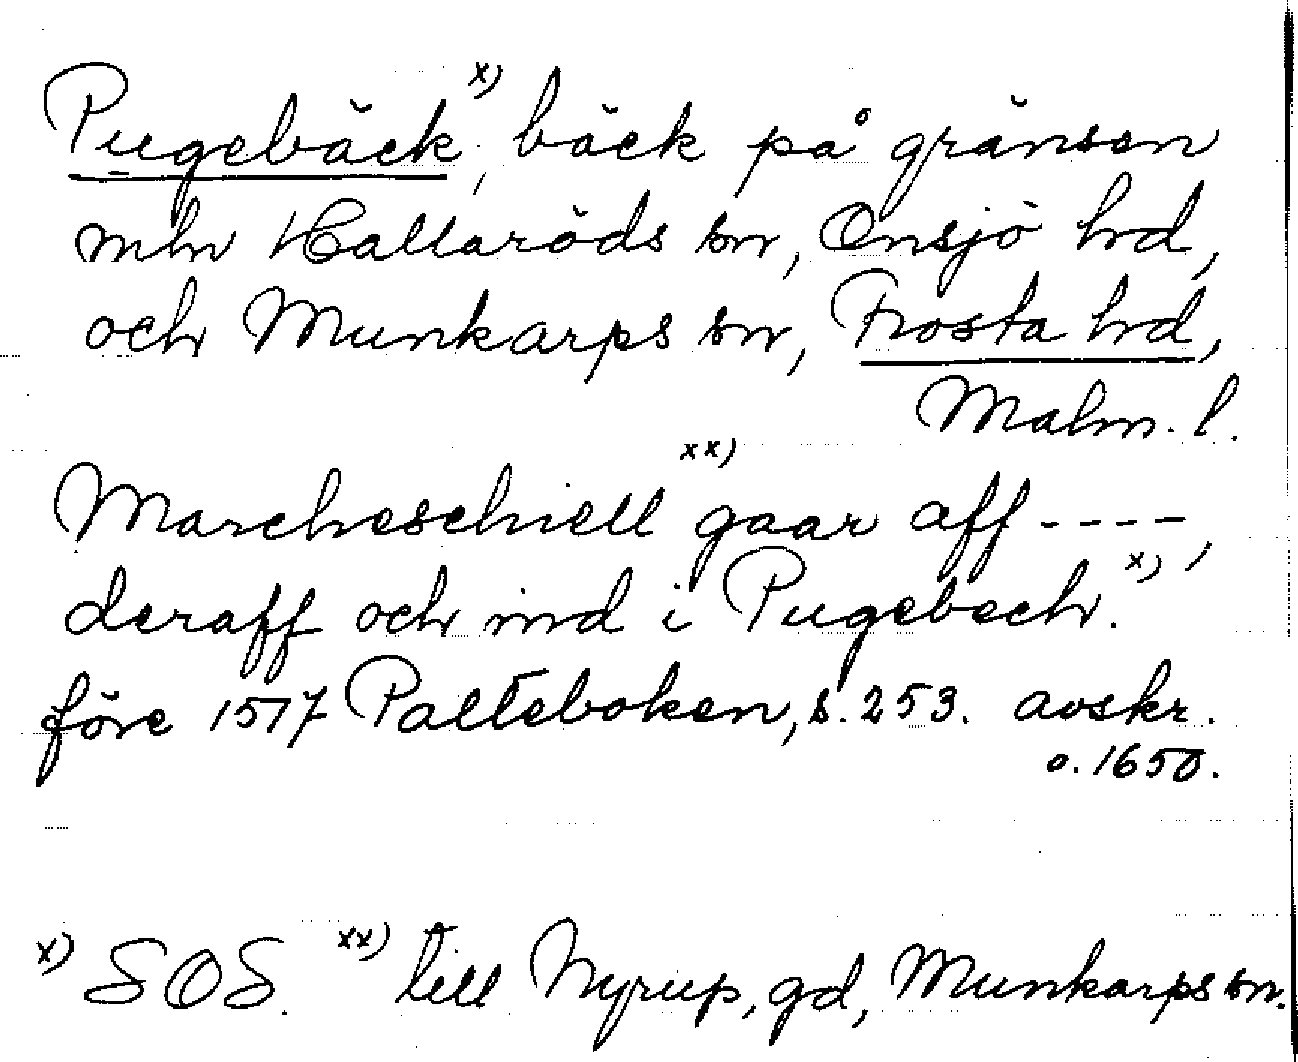 Pugebäck x), bäck på gränsen
mln Hallaröds sn, Onsjö hd,
och Munkarps sn, Frosta hd,
Malm. l.
Marcheschiell xx) gaar aff ----,
deraff och ind i Pugebech. x)
före 1517 Palteboken, s. 253. avskr.
o. 1650.
x) SOS. xx) till Nyrup, gd, Munkarps sn.